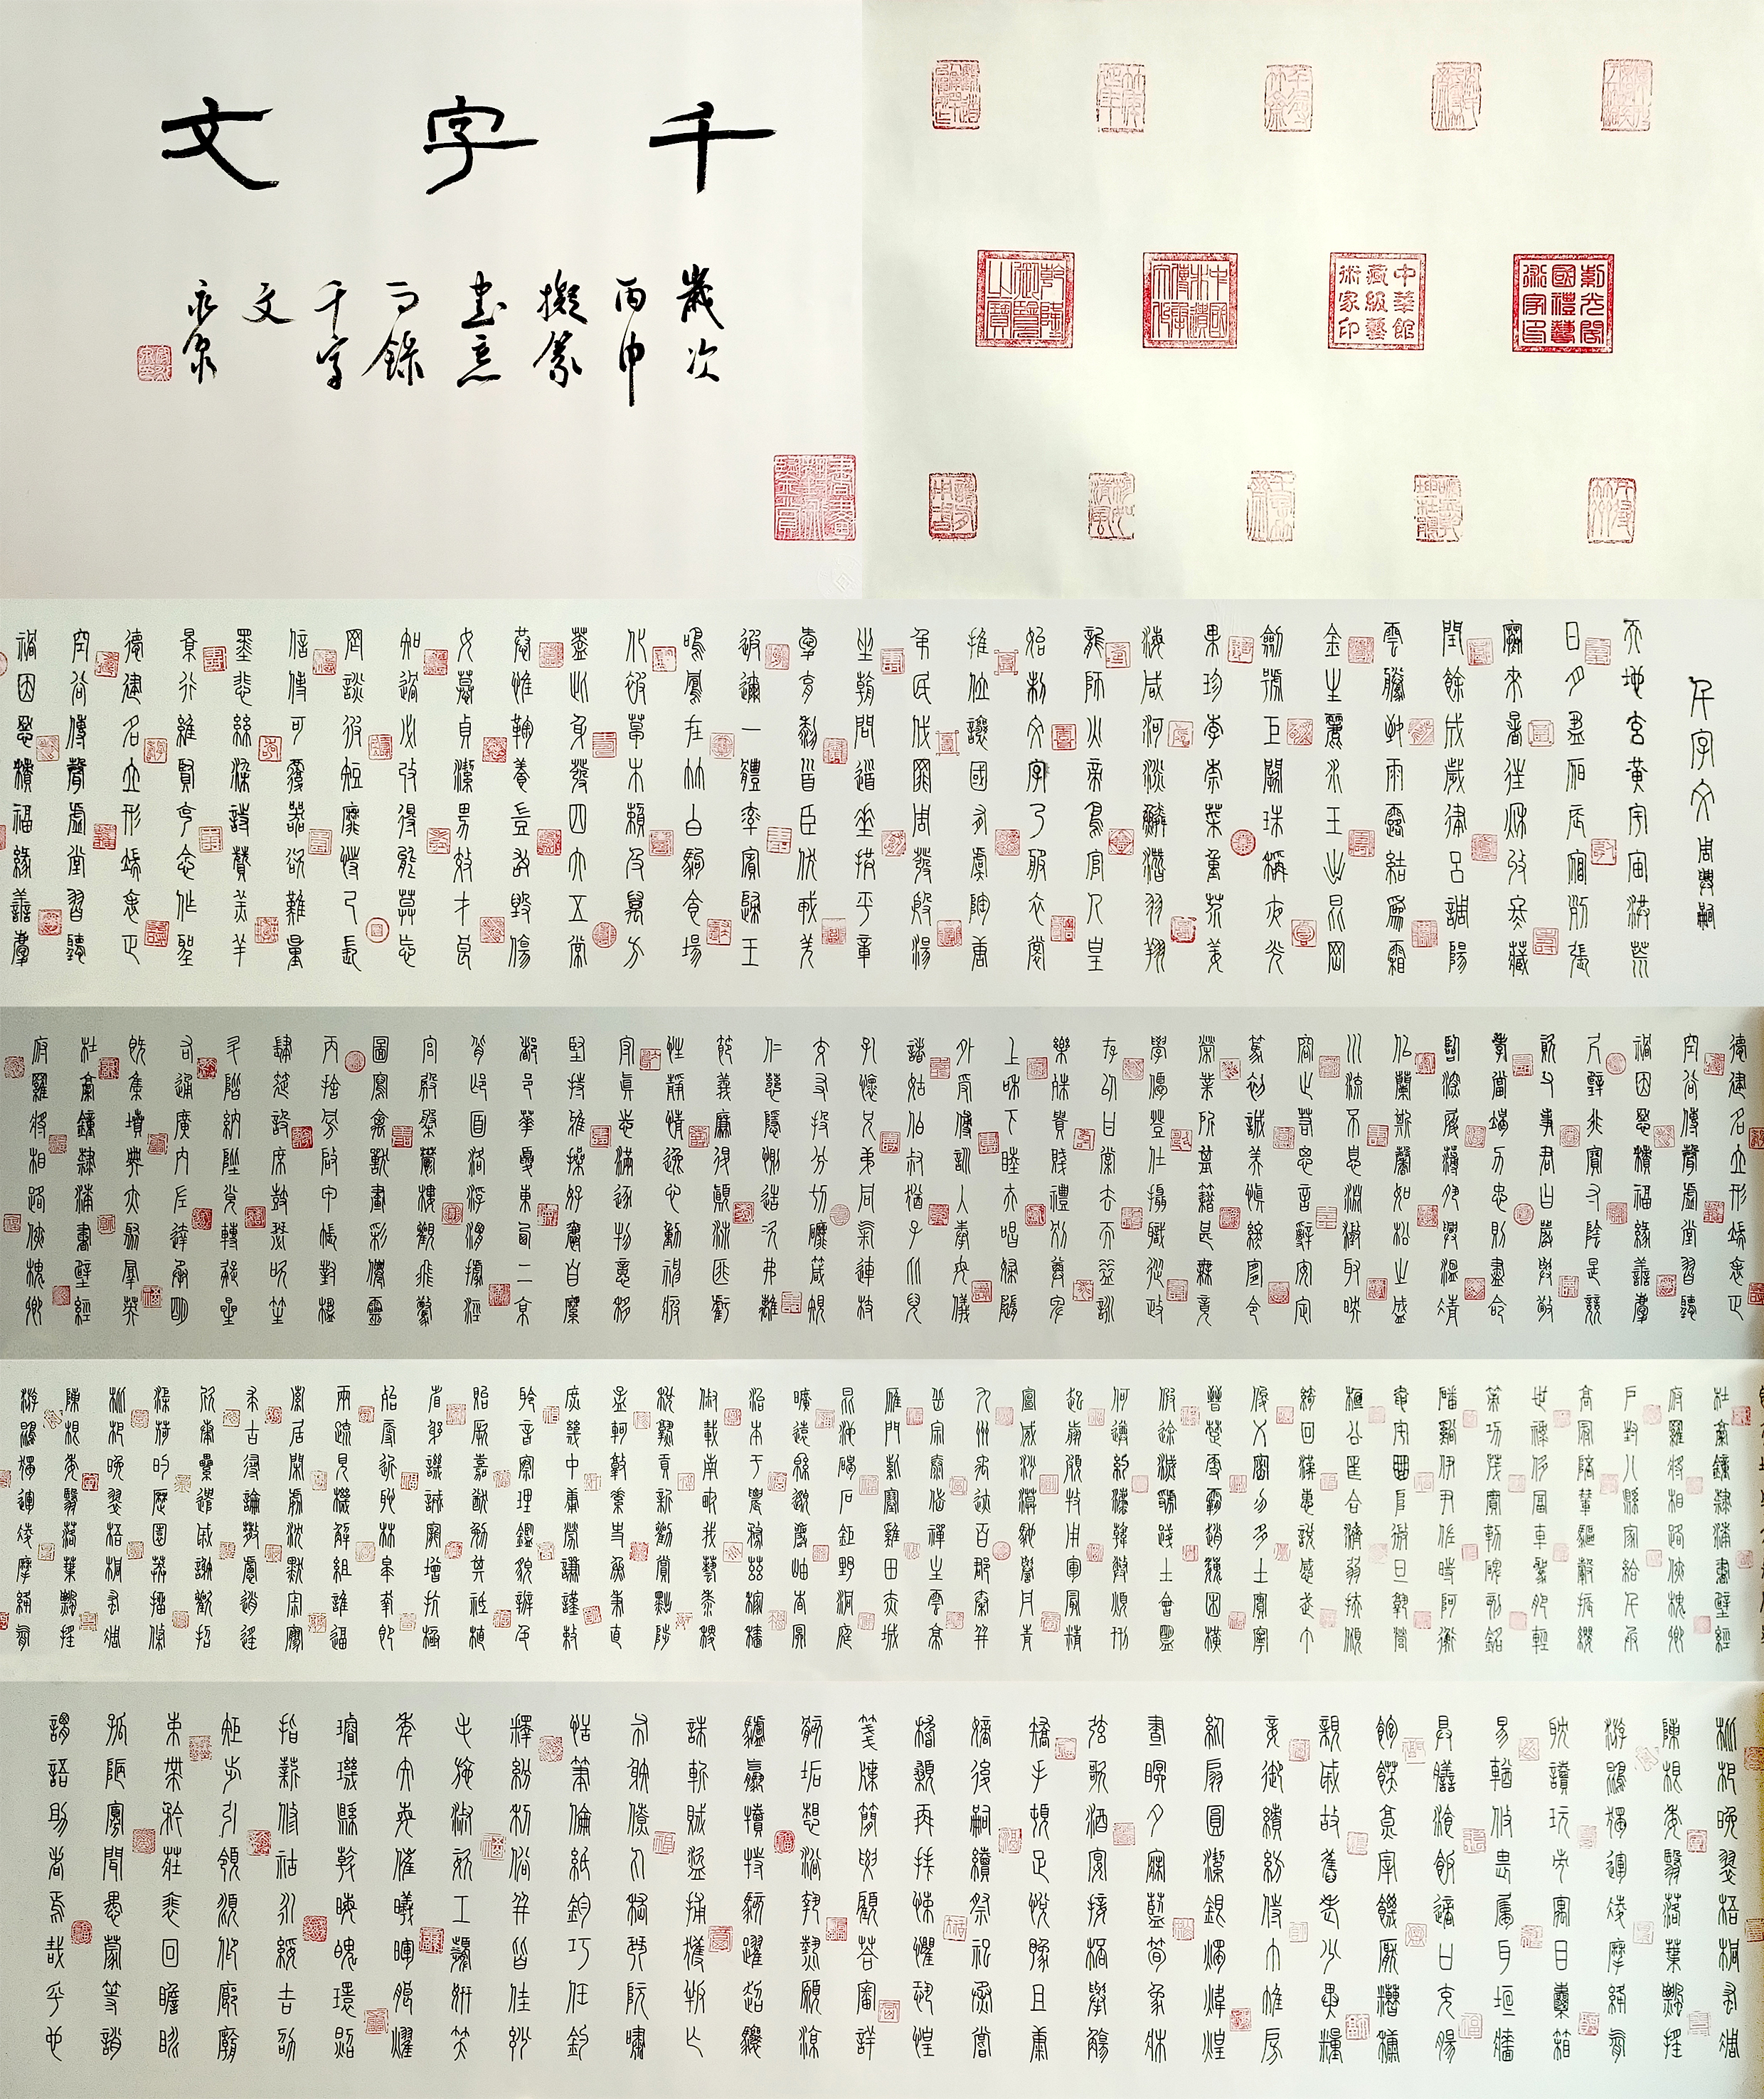 千字文
歲次
丙申
擬篆
書意
而錄
千字
文
永泉
紫光閣國禮藝術家印
中華館藏級藝術家印
千字文 周興嗣
天地玄黃宇宙洪荒
日月盈昃辰宿列張
寒來暑往秋收冬藏
閏餘成歲律呂調陽
雲騰致雨露結為霜
金生麗水玉出昆岡
劍號巨闕珠稱夜光
果珍李柰菜重芥薑
海鹹河淡鱗潛羽翔
龍師火帝鳥官人皇
始制文字乃服衣裳
推位讓國有虞陶唐
弔民伐罪周發殷湯
坐朝問道垂拱平章
愛育黎首臣伏戎羌
遐邇一體率賓歸王
鳴鳳在竹白駒食場
化被草木賴及萬方
蓋此身髮四大五常
恭惟鞠養豈敢毀傷
女慕貞潔男效才良
知過必改得能莫忘
罔談彼短靡恃己長
信使可覆器欲難量
墨悲絲染詩讚羔羊
景行維賢克念作聖
德建名立形端表正
空谷傳聲虛堂習聽
禍因惡積福緣善慶
德建名立形端表正
空谷傳聲虛堂習聽
禍因惡積福緣善慶
尺璧非寶寸陰是競
資父事君曰嚴與敬
孝當竭力忠則盡命
臨深履薄夙興溫凊
似蘭斯馨如松之盛
川流不息淵澄取映
容止若思言辭安定
篤初誠美慎終宜令
榮業所基籍甚無竟
學優登仕攝職從政
存以甘棠去而益詠
樂殊貴賤禮別尊卑
上和下睦夫唱婦隨
外受傅訓入奉母儀
諸姑伯叔猶子比兒
孔懷兄弟同氣連枝
交友投分切磨箴規
仁慈隱惻造次弗離
節義廉退顛沛匪虧
性靜情逸心動神疲
守真志滿逐物意移
堅持雅操好爵自縻
都邑華夏東西二京
背邙面洛浮渭據涇
宮殿盤鬱樓觀飛驚
圖寫禽獸畫彩仙靈
丙舍傍啟甲帳對楹
肆筵設席鼓瑟吹笙
升階納陛弁轉疑星
右通廣內左達承明
既集墳典亦聚群英
杜稿鍾隸漆書壁經
府羅將相路俠槐卿
杜稿鍾隸漆書壁經
府羅將相路俠槐卿
戶封八縣家給千兵
高冠陪輦驅轂振纓
世祿侈富車駕肥輕
策功茂實勒碑刻銘
磻溪伊尹佐時阿衡
奄宅曲阜微旦孰營
桓公匡合濟弱扶傾
綺回漢惠說感武丁
俊乂密勿多士寔寧
晉楚更霸趙魏困橫
假途滅虢踐土會盟
何遵約法韓弊煩刑
起翦頗牧用軍最精
宣威沙漠馳譽丹青
九州禹跡百郡秦并
嶽宗泰岱禪主云亭
雁門紫塞雞田赤城
昆池碣石鉅野洞庭
曠遠綿邈巖岫杳冥
治本於農務茲稼穡
俶載南畝我藝黍稷
稅熟貢新勸賞黜陟
孟軻敦素史魚秉直
庶幾中庸勞謙謹敕
聆音察理鑑貌辨色
貽厥嘉猷勉其祗植
省躬譏誡寵增抗極
殆辱近恥林皋幸即
兩疏見機解組誰逼
索居閑處沉默寂寥
求古尋論散慮逍遙
欣奏累遣慼謝歡招
渠荷的歷園莽抽條
枇杷晚翠梧桐早凋
陳根委翳落葉飄搖
游鵾獨運凌摩絳霄
枇杷晚翠梧桐早凋
陳根委翳落葉飄搖
游鵾獨運凌摩絳霄
耽讀玩市寓目囊箱
易輶攸畏屬耳垣牆
具膳餐飯適口充腸
飽飫烹宰飢厭糟糠
親戚故舊老少異糧
妾御績紡侍巾帷房
紈扇圓潔銀燭煒煌
晝眠夕寐藍筍象床
弦歌酒宴接杯舉觴
矯手頓足悅豫且康
嫡後嗣續祭祀烝嘗
稽顙再拜悚懼恐惶
箋牒簡要顧答審詳
骸垢想浴執熱願涼
驢騾犢特駭躍超驤
誅斬賊盜捕獲叛亡
布射僚丸嵇琴阮嘯
恬筆倫紙鈞巧任釣
釋紛利俗並皆佳妙
毛施淑姿工顰妍笑
年矢每催曦暉朗曜
璇璣懸斡晦魄環照
指薪修祜永綏吉劭
矩步引領俯仰廊廟
束帶矜莊徘徊瞻眺
孤陋寡聞愚蒙等誚
謂語助者焉哉乎也